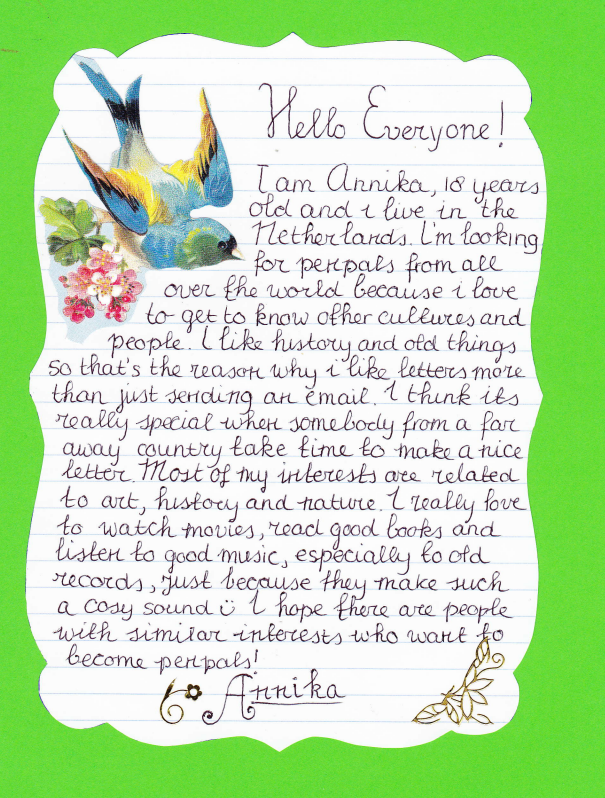 Hello Everyone!
I am Annika, 18 years
old and i live in the
Netherlands. I'm looking
for penpals from all
over the world because i love
to get to know other cultures and
people. I like history and old things
so that's the reason why i like letters more
than just sending an email. I think its
really special when somebody from a far
away country take time to make a nice
letter. Most of my interests are related
to art, history and nature. I really love
to watch movies, read good books and
listen to good music, especially to old
records, just because they make such
a cosy sound ü I hope there are people
with similar interests who want to
become penpals!
Annika